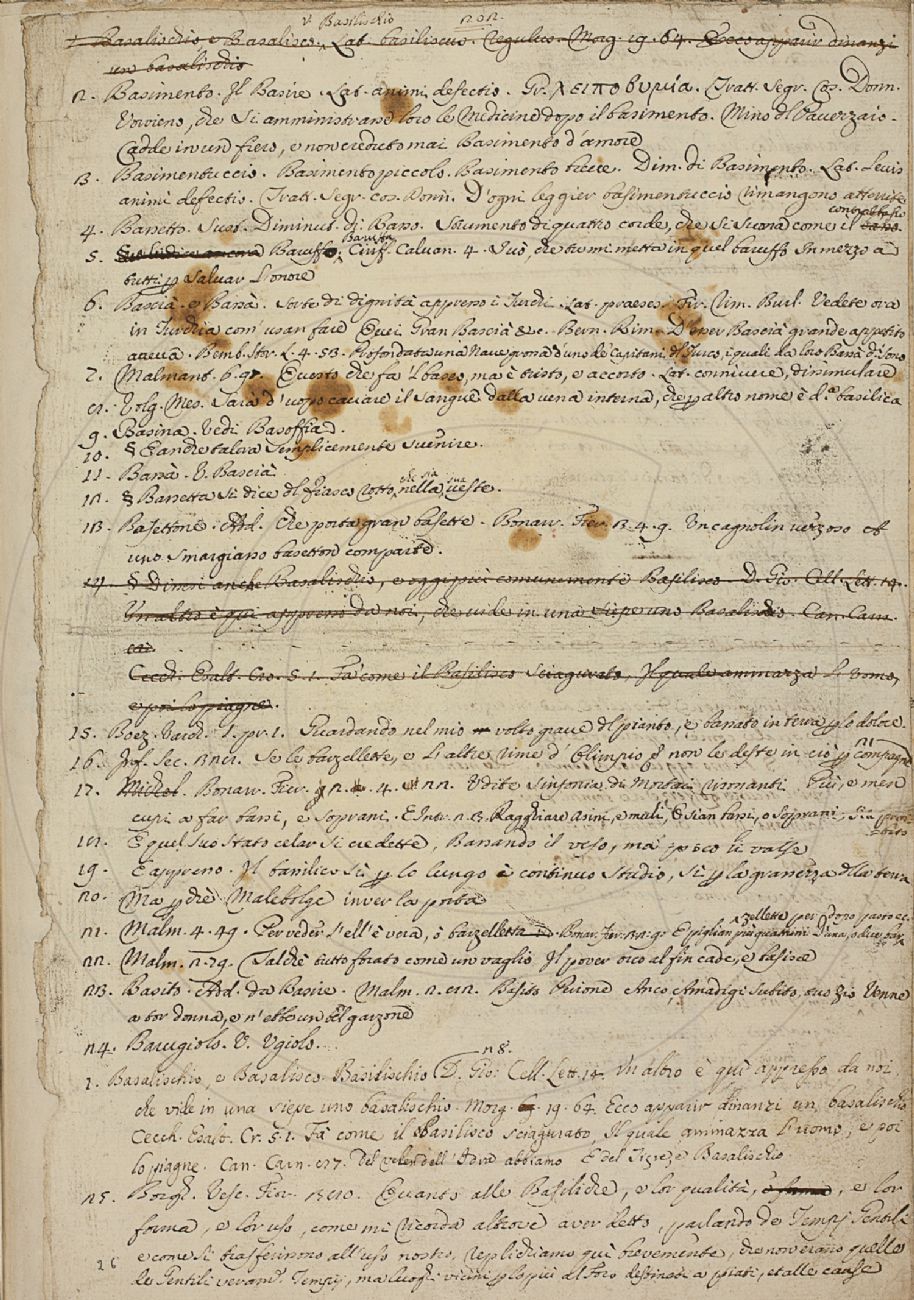 v. Basilischio
1. Basalischio e Basalisco. Lat. basiliscus. Regulus. Morg. 19. 64. Ecco apparir dinanzi
un basalischio
2. Basimento. Il Basire. Lat. animi defectio. Gr. λειποθυμία. Tratt. Segr. Cos. Donn.
che si amministrano loro le Medicine dopo il basimento.
Cadde in un fiero, e non creduto mai Basimento d'amore
3. Basimentuccio. Basimento piccolo. Basimento lieve. Dim. di Basimento. Lat. Levis
animi defectio. Tratt. Segr. cos. Donn. D'ogni leggier basimentuccio rimangono atterrite
contrabasso
4. Bassetto. Sust. Diminut. di Basso. Strumento di quattro corde, che si suona come il basso.
Baruffa
5. Baruffo. Ciriff. Calvan. 4. in quel baruffo In mezzo a
tutti per salvar l'onore
6. Bascià, e Bassà. Sorte di dignità appresso i Turchi. Lat. praeses. Fir. Rim. Burl. Vedete ora
in Turchia com' usan fare Quei Gran Bascià &c. Bern. Rim. D'esser Bascià grande appetito
aveva. Bemb. Stor. L. 4. 53. Profondata una Nave grossa d'uno de' Capitani del Turco, i quali da loro Bassà di sono
7. Malmant. 6. 91. Questo che fa 'l baseo, ma è tristo, e accorto. Lat. connivere, dissimulare
8. Volg. Mes. Sarà d'uopo cavare il sangue dalla vena interna, che per altro nome è d.a basilica
9. Basina. Vedi Basoffia.
10. § E anche talora semplicemente svenire.
11. Bassà. V. Bascià
che sia sua
12. § Bassetta si dice del Fiasco rotto, nella veste.
13. Basettone. Add. Che porta gran basette. Bonarr. Fier. 3. 4. 9. Un cagnolin vezzoso ed
uno smargiasso basetton comparte.
14. § Dicesi anche Basalischio, e oggi più comunemente Basilisco. D. Gio. Cell. Lett. 14.
Un altro è qui appresso da noi, che vide in una siepe uno Basalischio. Can. Carn.
Cecch. Esalt. Cro. 5. 1. Fa come il Basilisco sciagurato, Il quale ammazza l'uomo,
e poi lo piagne.
15. Boez. Varch. 1. pr. 1. Guardando nel mio volto grave del pianto, e bassato in terra per lo dolore.
16. Inf. Sec. Se le barzellette, e l'altre rime d'Olimpio non le deste in ciò per compagne
17. Bonarr. Fier. Udite sinfonia di Mortai risonanti Più, e men
cupi a far bassi, e soprani. E Intr. 2. 3. Ragghiare asini, e muli, O sian bassi, o soprani,
18. E quel suo stato celar si credette, Bassando il viso, ma poco li valse
19. E appresso. Il basilico sì per lo lungo e continuo studio, sì per la grassezza della terra
20. Ma perché Malebolge inver la porta
21. Malm. 4. 49. Per veder s'ell'è vera, o barzelletta
22. Malm. 2. 79. Talché tutto forato come un vaglio Il pover orco al fin cade, e basisce
23. Basito. Add. da Basire. Malm. 2. Basito Perione Anco, Amadigi subito, suo zio Venne
a tor donna, e n'ebbe un bel garzone
24. Barugiolo. V. Ugiolo.
28.
1. Basalischio, e Basalisco. Basilischio D. Gio. Cell. Lett. 14. Un altro è quì appresso da noi,
che vide in una siepe uno basalischio. Morg. 19. 64. Ecco apparir dinanzi un basalischio
Cecch. Esalt. Cr. 5. 1. Fa come il Basilisco sciagurato, Il quale ammazza l'uomo, e poi
lo piagne. Can. Carn. 27. Del velen dell'Idra abbiamo E del Tigre, e Basalischio
25. Borgh. Vesc. Fior. Quanto alle Basiliche, e lor qualità, e forma, e lor
forma, e lor uso, come mi ricorda altrove aver detto, parlando de' Tempj Gentili
e come si trasferirono all'uso nostro, replichiamo quì brevemente, che non erano quelle
26 de' Gentili veram.e Tempj, ma luoghi vicini per lo più al Foro destinati a piati, et alle cause